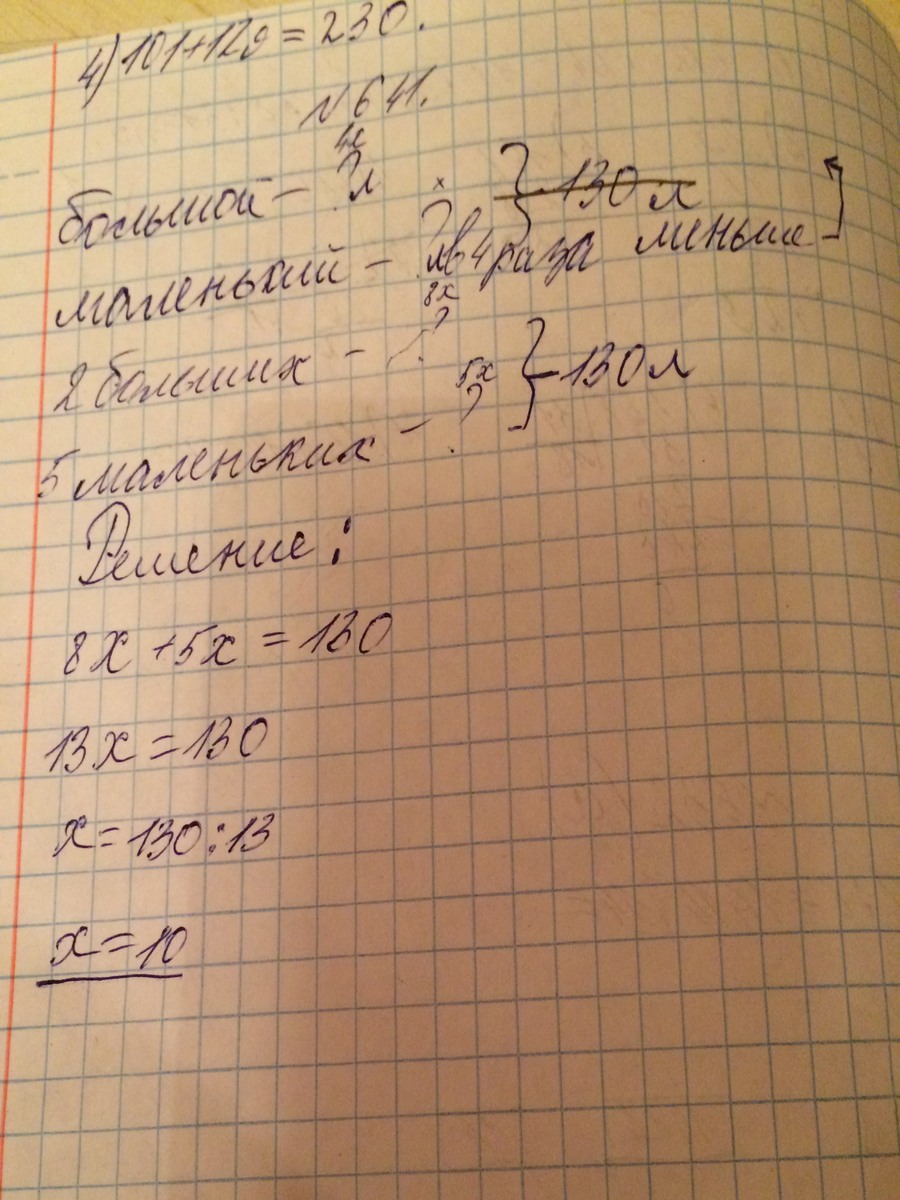 4) 101+129=230.
№641.
4x
большой - ? л } 130 л
маленький - ? л в 4 раза меньше
8x
2 больших - ?
5x } - 130 л
5 маленьких - ?
Решение:
8x + 5x = 130
13x = 130
x = 130:13
x = 10